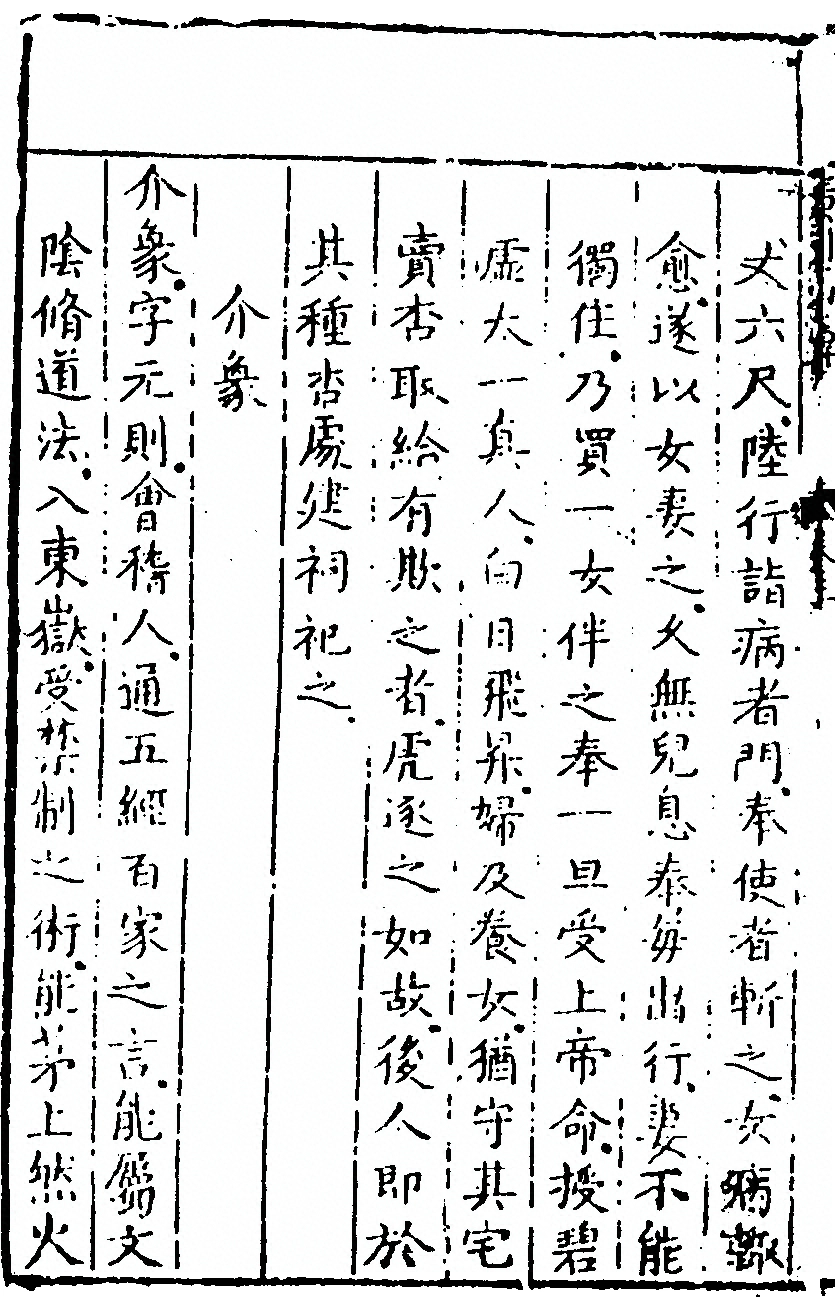 丈六尺陸行詣病者門奉使者斬之女病輙
愈遂以女妻之久無兒息奉每出行妻不能
獨住乃買一女伴之奉一旦受上帝命授碧
虛太一真人白日飛昇婦及養女猶守其宅
賣杏取給有欺之者虎逐之如故後人即於
其種杏處建祠祀之
介象
介象字元則會稽人通五經百家之言能屬文
陰脩道法入東嶽受禁制之術能茅上燃火